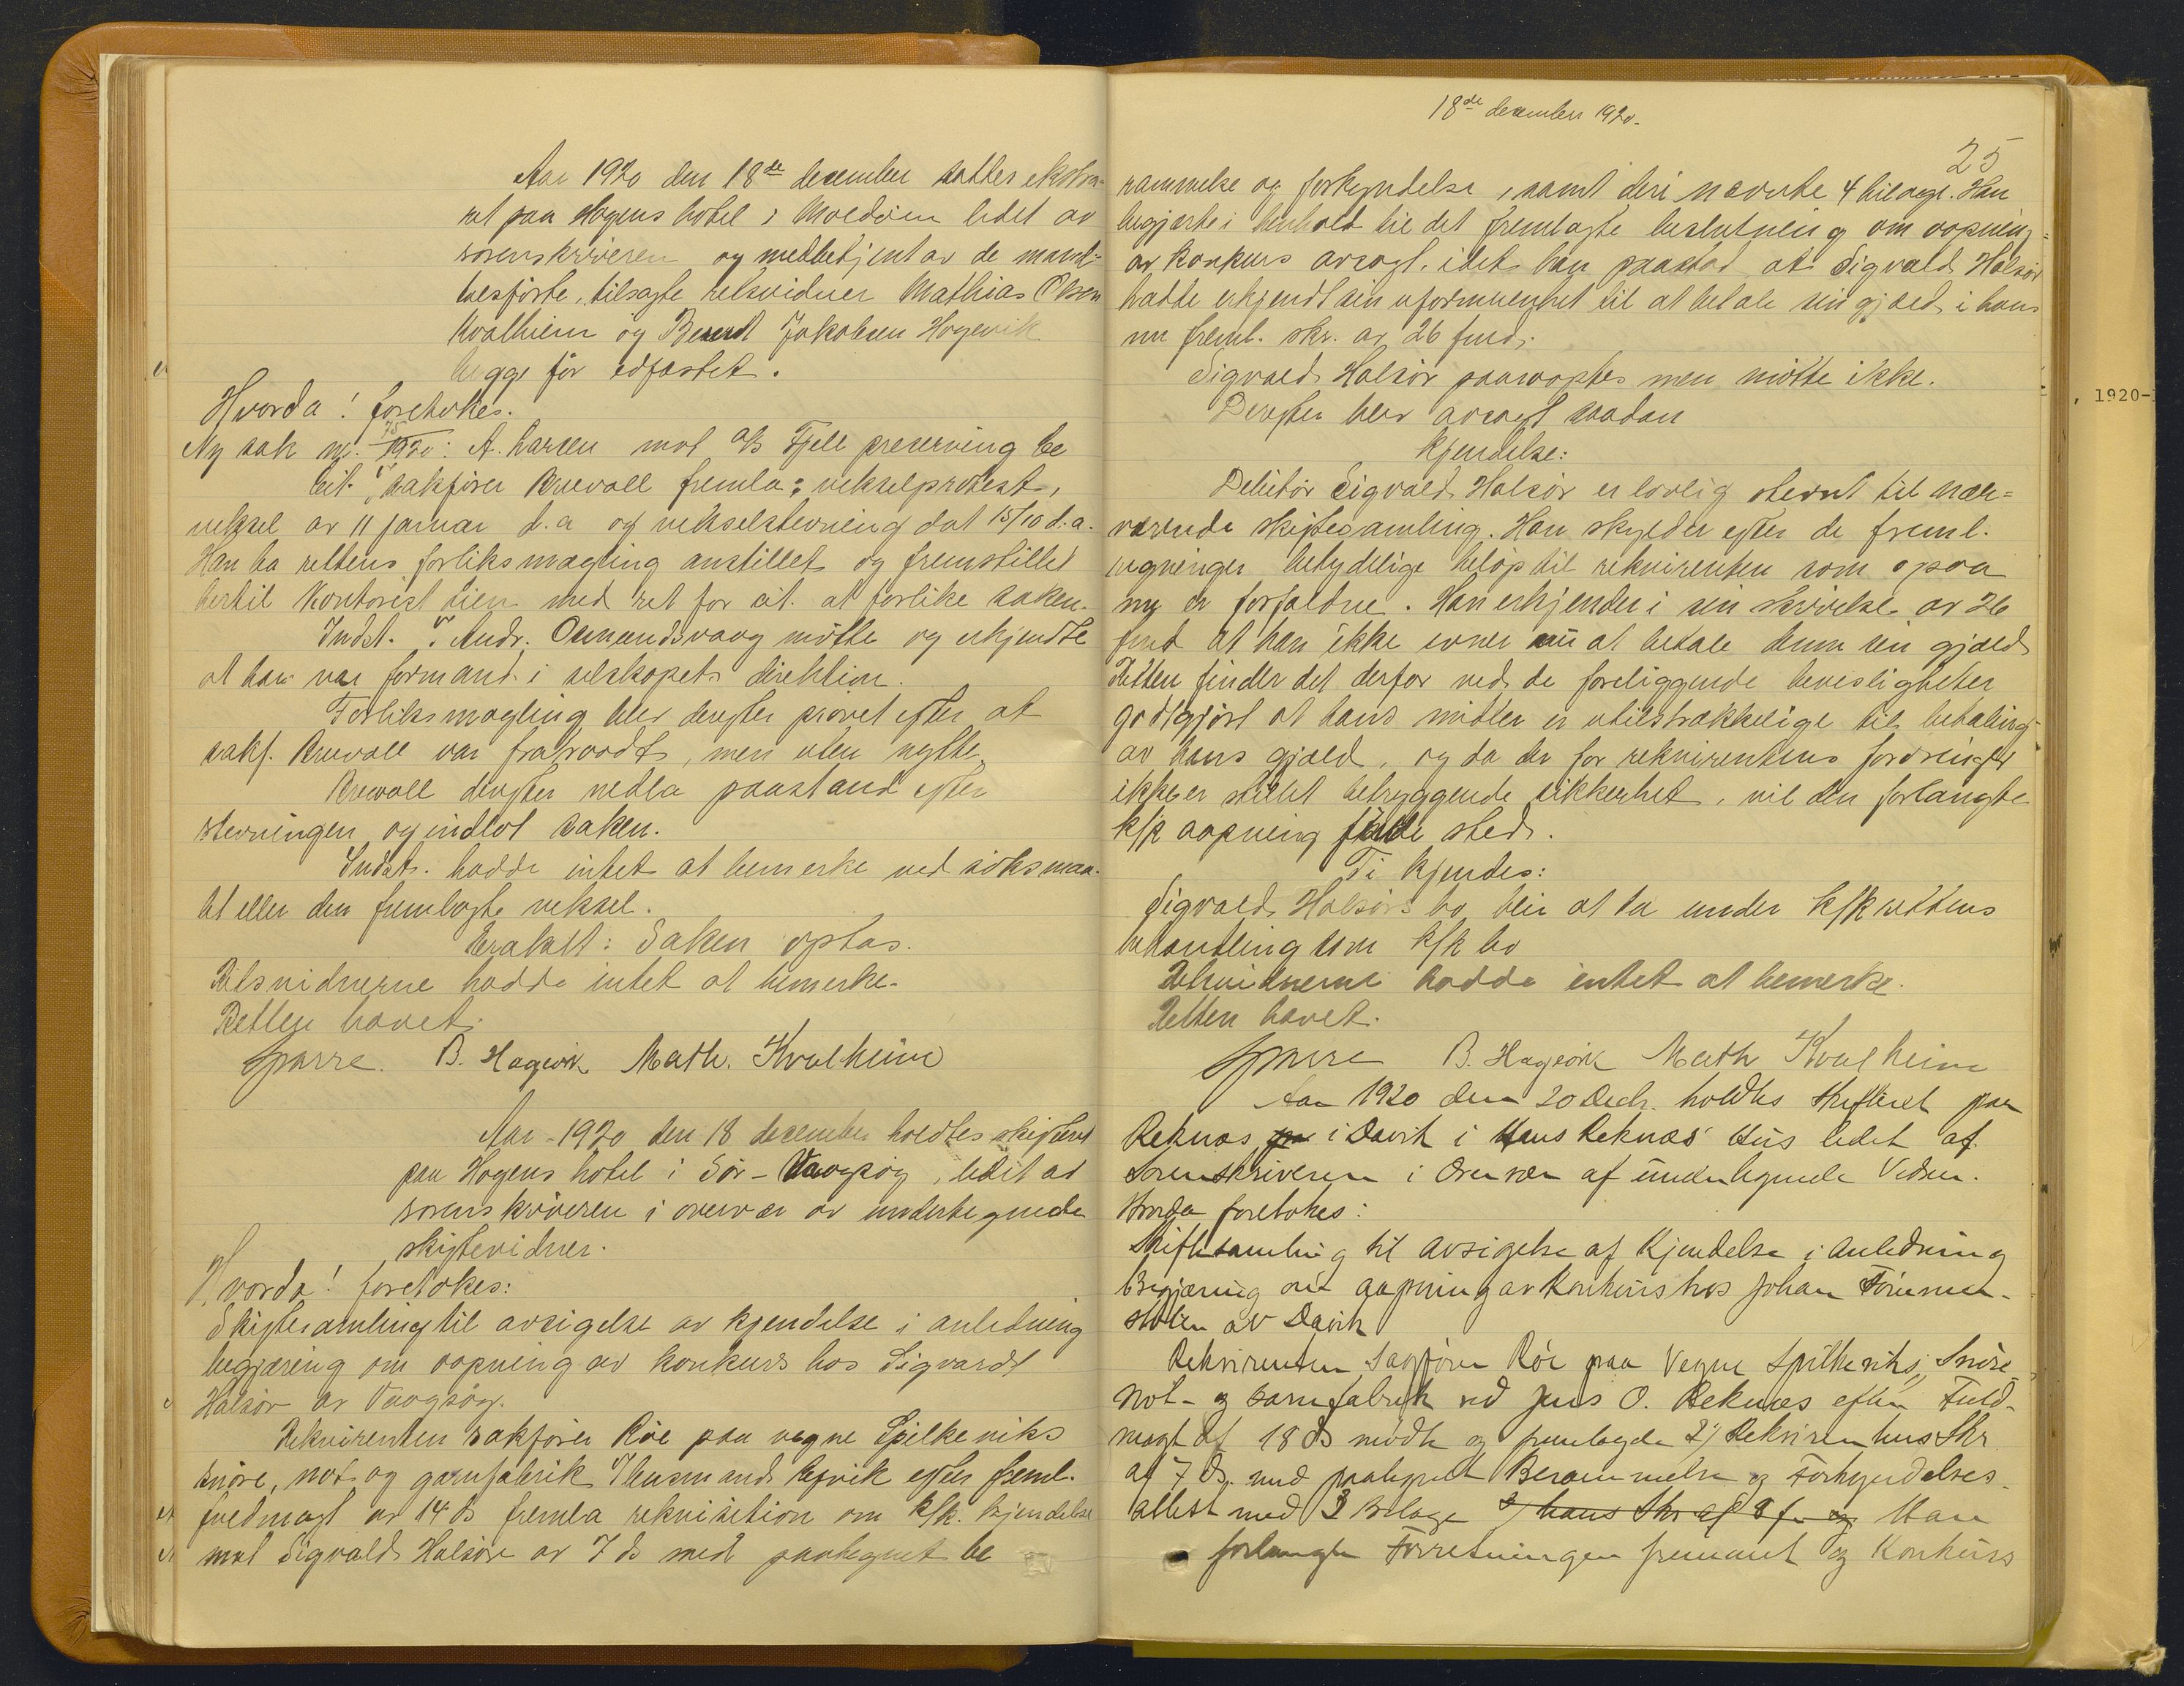 Aar 1920 den 18de december sattes ekstra-
ret paa Hagens hotel i Moldöen ledet av
sorenskriveren og medbetjent av de mand-
talsförte, tilsagte retsvidner Mathias Olsen
Kvalheim og Berent Jakobsen Hagevik
begge för edfæstet.
Hvorda! foretokes.
Ny sak nr. 75/1920: A. Larsen mot A/S Fjell preserving Co
Cit. v/ sakförer Kruvall fremla: vekselprotest,
veksel av 11 januar d.a og vekselstevning dat 15/10 d.a.
Han ba rettens forliksmægling anstillet og fremstillet
hertil Kontorist Lien med ret for cit. at forlike saken.
Indst. v/ Andr. Osmundsvaag mötte og erkjendte
at han var formand i selskapets direktion.
Forliksmægling blev derefter prövet efter at
sakf. Kruvall var fratraadt, men uten nytte.
Kruvall derefter nedla paastand efter
stevningen og indlot saken.
Indst. hadde intet at bemerke ved söksmaa-
let eller den fremlagte veksel.
Eragtet: Saken optas.
Retsvidnerne hadde intet at bemerke.
Retten hævet.
Sparre. B. Hagevik Math. Kvalheim
Aar 1920 den 18 december holdtes skifteret
paa Hagens hotel i Sör-Vaagsöy, ledet av
sorenskriveren i overvær av undertegnede
skiftevidner.
Hvorda! foretokes:
Skiftesamling til avsigelse av kjendelse i anledning
begjæring om aapning av konkurs hos Sigvardt
Halsör av Vaagsöy.
Rekvirenten sakförer Röe paa vegne Spilkeviks
snöre, not og garnfabrik v/ Husmand Lefvik efter freml.
fuldmagt av 14 ds fremla rekvisition om k/k. kjendelse
mot Sigvald Halsör av 7 ds med paategnet be
18de december 1920.
25
rammelse og forkyndelse, samt deri nævnte 4 bilage. Han
begjærte i henhold til det fremlagte beslutning om aapning
av konkurs avsagt, idet han paastod at Sigvald Halsör
hadde erkjendt sin uformuenhet til at betale sin gjæld i hans
nu freml. skr. av 26 f.md.
Sigvald Halsör paaraoptes men mötte ikke.
Derefter blev avsagt saadan
Kjendelse:
Debitor Sigvald Halsör er lovlig stevnt til nær-
værende skiftesamling. Han skylder efter de freml.
regninger betydelige belöp til rekvirenten som ogsaa
nu er forfaldne. Han erkjender i sin skrivelse av 26
f.md at han ikke evner nu at betale denne sin gjæld
Retten finder det derfor ved de foreliggende bevisligheter
godtgjort at hans midler er utilstrækkelige til betaling
av hans gjæld, og da der for rekvirentens fordringer
ikke er stillet betryggende sikkerhet, vil den forlangte
k/k aapning finde sted.
Ti kjendes:
Sigvald Halsörs bo blir at ta under k/k rettens
behandling som k/k bo
Retsvidnerne hadde intet at bemerke.
Retten hævet.
Sparre B. Hagevik Math Kvalheim
Aar 1920 den 20 Decbr. holdtes Skifteret paa
Reknæs i Davik i Hans Reknæs' Hus ledet af
Sorenskriveren i Overvær af undertegnede Vidner.
Hvorda foretokes:
Skiftesamling til avsigelse af Kjendelse i Anledning
Begjæring om aapning av Konkurs hos Johan
av Davik
Rekvirenten Sagförer Röe paa Vegne Spilkeviks Snöre,
Not- og Garnfabrik ved Jens O. Reknæs efter Fuld-
magt af 18 ds mödte og fremlagde 2/ Rekvirentens Skr
af 7 ds. med paategnet Berammelse og Forkyndelses-
attest med 3 Bilage 2/ hans Skr af 8 f. og Han
forlangte Forretningen fremmet og Konkurs
, 1920-